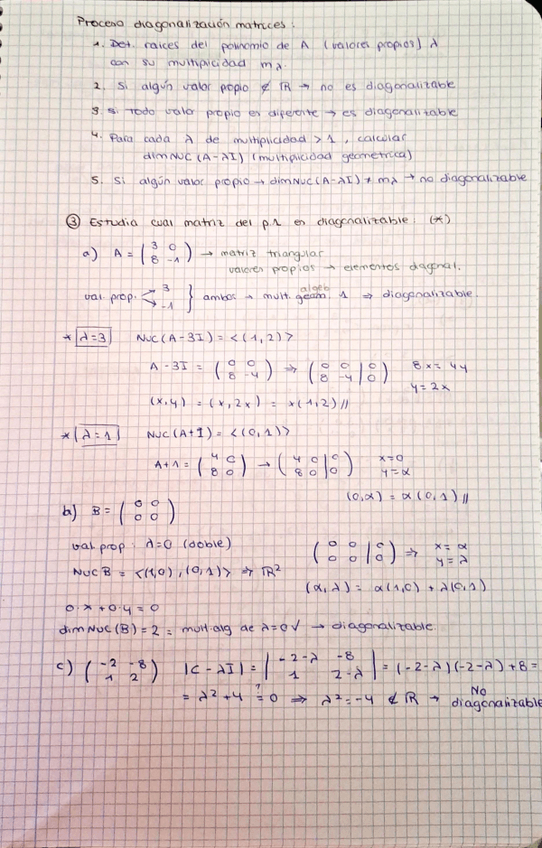 Proceso diagonalización matrices:
1. Det. raíces del polinomio de A (valores propios) λ
con su multiplicidad mλ.
2. Si algún valor propio ∉ ℝ → no es diagonalizable
3. Si todo valor propio es diferente → es diagonalizable
4. Para cada λ de multiplicidad > 1, calcular
dim NUC (A-λI) (multiplicidad geométrica)
5. Si algún valor propio → dim NUC (A-λI) ≠ mλ → no diagonalizable
③ Estudia cual matriz del p.1 es diagonalizable: (*)
a) A = (3 0 / 8 -1) → matriz triangular
valores propios → elementos diagonal.
algeb
val. prop. 3 / -1 } ambos → mult. geom. 1 ⇒ diagonalizable.
* λ=3 NUC (A-3I) = <(1,2)>
A-3I = (0 0 / 8 -4) ⇒ (0 0 | 0 / 8 -4 | 0) 8x = 4y
y = 2x
(x,y) = (x,2x) = x(1,2) //
* λ=1 NUC (A+I) = <(0,1)>
A+1 = (4 0 / 8 0) → (4 0 | 0 / 8 0 | 0) x=0
y=α
(0,α) = α(0,1) //
b) B = (0 0 / 0 0)
val prop: λ=0 (doble) (0 0 | 0 / 0 0 | 0) ⇒ x=α
y=λ
NUC B = <(1,0),(0,1)> ⇒ ℝ²
(α,λ) = α(1,0) + λ(0,1)
0·x+0·y=0
dim NUC (B) = 2 = mult.alg de λ=0 ✓ → diagonalizable.
c) (-2 -8 / 1 2) |C-λI| = |-2-λ -8 / 1 2-λ| = (-2-λ)(-2-λ)+8 =
= λ²+4 =? 0 ⇒ λ²=-4 ∉ ℝ → No
diagonalizable